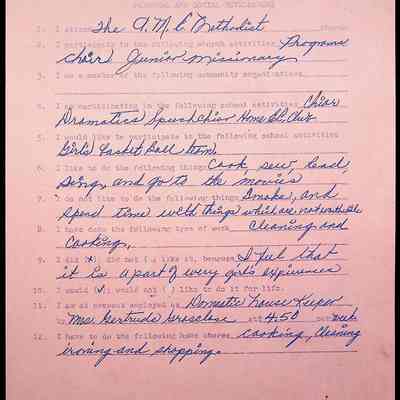 PERSONAL AND SOCIAL DEVELOPMENT
1. I attend The A.M.E. Methodist church
2. I participate in the following church activities Programs
Choir, Junior Missionary
3. I am a member of the following community organizations
4. I am participating in the following school activities Choir
Dramatics Speech Choir Home Ec. Club
5. I would like to participate in the following school activities
Girls Basket Ball team
6. I like to do the following things Cook, sew, read,
Sing, and go to the movies
7. I do not like to do the following things Smoke, and
spend time with things which are not worthwhile
8. I have done the following type of work Cleaning and
Cooking,
9. I did (x) did not ( ) like it, because I feel that
it is a part of every girl's experience
10. I would (✓) would not ( ) like to do it for life.
11. I am at present employed as Domestic House Keeper
by Mrs. Gertrude at 4.50 per week
12. I have to do the following home chores cooking, cleaning
ironing and shopping.